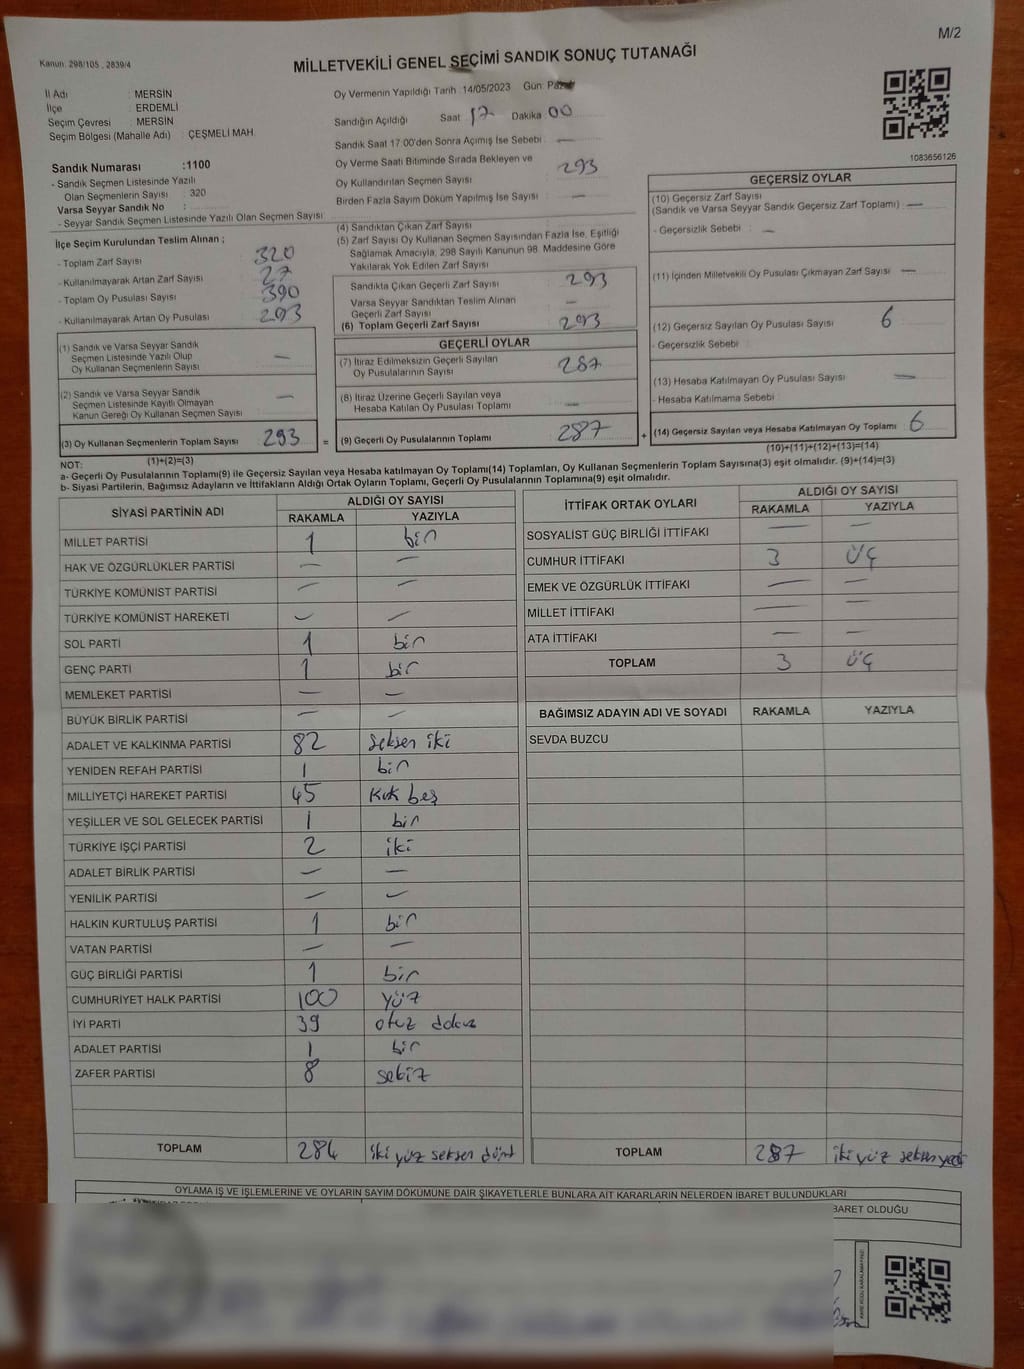 M/2
Kanun: 298/105 , 2839/4
MİLLETVEKİLİ GENEL SEÇİMİ SANDIK SONUÇ TUTANAĞI
İl Adı : MERSİN
İlçe : ERDEMLİ
Seçim Çevresi : MERSİN
Seçim Bölgesi (Mahalle Adı) : ÇEŞMELİ MAH.
Sandık Numarası :1100
- Sandık Seçmen Listesinde Yazılı
Olan Seçmenlerin Sayısı : 320
Varsa Seyyar Sandık No :
- Seyyar Sandık Seçmen Listesinde Yazılı Olan Seçmen Sayısı :
Oy Vermenin Yapıldığı Tarih :14/05/2023 Gün: Pazar
Sandığın Açıldığı Saat 17 Dakika 00
Sandık Saat 17:00'den Sonra Açımış İse Sebebi : —
Oy Verme Saati Bitiminde Sırada Bekleyen ve
Oy Kullandırılan Seçmen Sayısı : 293
Birden Fazla Sayım Döküm Yapılmış İse Sayısı : —
1083656126
İlçe Seçim Kurulundan Teslim Alınan ;
- Toplam Zarf Sayısı : 320
- Kullanılmayarak Artan Zarf Sayısı : 27
- Toplam Oy Pusulası Sayısı : 390
- Kullanılmayarak Artan Oy Pusulası : 293
(1) Sandık ve Varsa Seyyar Sandık
Seçmen Listesinde Yazılı Olup
Oy Kullanan Seçmenlerin Sayısı : —
(2) Sandık ve Varsa Seyyar Sandık
Seçmen Listesinde Kayıtlı Olmayan
Kanun Gereği Oy Kullanan Seçmen Sayısı : —
(3) Oy Kullanan Seçmenlerin Toplam Sayısı : 293
(1)+(2)=(3)
(4) Sandıktan Çıkan Zarf Sayısı :
(5) Zarf Sayısı Oy Kullanan Seçmen Sayısından Fazla İse, Eşitliği
Sağlamak Amacıyla, 298 Sayılı Kanunun 98. Maddesine Göre
Yakılarak Yok Edilen Zarf Sayısı :
Sandıkta Çıkan Geçerli Zarf Sayısı : 293
Varsa Seyyar Sandıktan Teslim Alınan
Geçerli Zarf Sayısı : —
(6) Toplam Geçerli Zarf Sayısı : 293
GEÇERLİ OYLAR
(7) İtiraz Edilmeksizin Geçerli Sayılan
Oy Pusulalarının Sayısı : 287
(8) İtiraz Üzerine Geçerli Sayılan veya
Hesaba Katılan Oy Pusulası Toplamı : —
= (9) Geçerli Oy Pusulalarının Toplamı : 287
GEÇERSİZ OYLAR
(10) Geçersiz Zarf Sayısı
(Sandık ve Varsa Seyyar Sandık Geçersiz Zarf Toplamı) : —
- Geçersizlik Sebebi : —
(11) İçinden Milletvekili Oy Pusulası Çıkmayan Zarf Sayısı : —
(12) Geçersiz Sayılan Oy Pusulası Sayısı : 6
- Geçersizlik Sebebi :
(13) Hesaba Katılmayan Oy Pusulası Sayısı : —
- Hesaba Katılmama Sebebi :
+ (14) Geçersiz Sayılan veya Hesaba Katılmayan Oy Toplamı : 6
(10)+(11)+(12)+(13)=(14)
NOT:
a- Geçerli Oy Pusulalarının Toplamı(9) ile Geçersiz Sayılan veya Hesaba katılmayan Oy Toplamı(14) Toplamları, Oy Kullanan Seçmenlerin Toplam Sayısına(3) eşit olmalıdır. (9)+(14)=(3)
b- Siyasi Partilerin, Bağımsız Adayların ve İttifakların Aldığı Ortak Oyların Toplamı, Geçerli Oy Pusulalarının Toplamına(9) eşit olmalıdır.
SİYASİ PARTİNİN ADI ALDIĞI OY SAYISI
RAKAMLA YAZIYLA
MİLLET PARTİSİ 1 bir
HAK VE ÖZGÜRLÜKLER PARTİSİ — —
TÜRKİYE KOMÜNİST PARTİSİ — —
TÜRKİYE KOMÜNİST HAREKETİ — —
SOL PARTİ 1 bir
GENÇ PARTİ 1 bir
MEMLEKET PARTİSİ — —
BÜYÜK BİRLİK PARTİSİ — —
ADALET VE KALKINMA PARTİSİ 82 seksen iki
YENİDEN REFAH PARTİSİ 1 bir
MİLLİYETÇİ HAREKET PARTİSİ 45 kırk beş
YEŞİLLER VE SOL GELECEK PARTİSİ 1 bir
TÜRKİYE İŞÇİ PARTİSİ 2 iki
ADALET BİRLİK PARTİSİ — —
YENİLİK PARTİSİ — —
HALKIN KURTULUŞ PARTİSİ 1 bir
VATAN PARTİSİ — —
GÜÇ BİRLİĞİ PARTİSİ 1 bir
CUMHURİYET HALK PARTİSİ 100 yüz
İYİ PARTİ 39 otuz dokuz
ADALET PARTİSİ 1 bir
ZAFER PARTİSİ 8 sekiz
TOPLAM 284 iki yüz seksen dört
İTTİFAK ORTAK OYLARI ALDIĞI OY SAYISI
RAKAMLA YAZIYLA
SOSYALİST GÜÇ BİRLİĞİ İTTİFAKI — —
CUMHUR İTTİFAKI 3 üç
EMEK VE ÖZGÜRLÜK İTTİFAKI — —
MİLLET İTTİFAKI — —
ATA İTTİFAKI — —
TOPLAM 3 üç
BAĞIMSIZ ADAYIN ADI VE SOYADI RAKAMLA YAZIYLA
SEVDA BUZCU
TOPLAM 287 iki yüz seksen yedi
OYLAMA İŞ VE İŞLEMLERİNE VE OYLARIN SAYIM DÖKÜMÜNE DAİR ŞİKAYETLERLE BUNLARA AİT KARARLARIN NELERDEN İBARET BULUNDUKLARI
BARET OLDUĞU